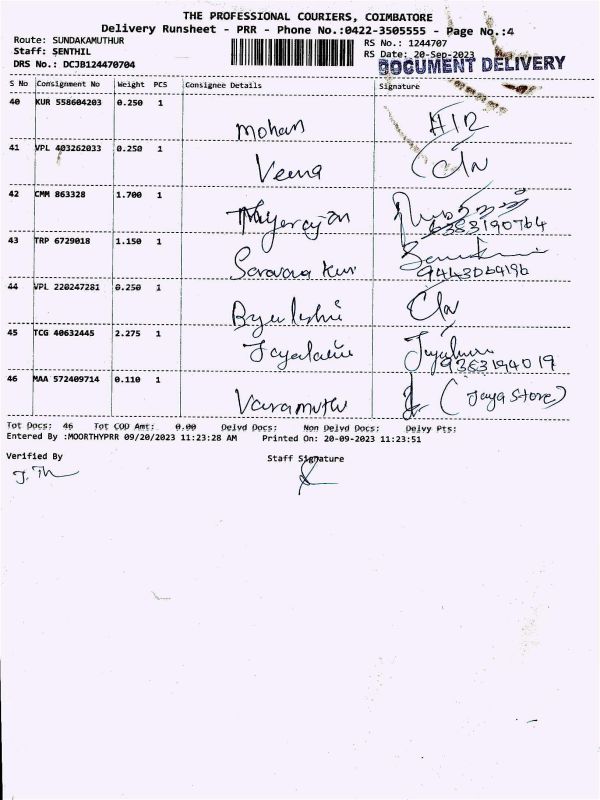 THE PROFESSIONAL COURIERS, COIMBATORE
Delivery Runsheet - PRR - Phone No.:0422-3505555 - Page No.:4
Route: SUNDAKAMUTHUR
RS No.: 1244707
Staff: SENTHIL
RS Date: 20-Sep-2023
DRS No.: DCJB124470704
DOCUMENT DELIVERY
S No Consignment No Weight PCS Consignee Details Signature
40 KUR 558604203 0.250 1
Mohan
41 VPL 403262033 0.250 1
Veena
42 CMM 863328 1.700 1
6383190764
43 TRP 6729018 1.150 1
9443064196
44 VPL 220247281 0.250 1
45 TCG 40632445 2.275 1
9363194019
46 MAA 572409714 0.110 1
(Jaya Store)
Tot Docs: 46 Tot COD Amt: 0.00 Delvd Docs: Non Delvd Docs: Delvy Pts:
Entered By :MOORTHYPRR 09/20/2023 11:23:28 AM Printed On: 20-09-2023 11:23:51
Verified By Staff Signature